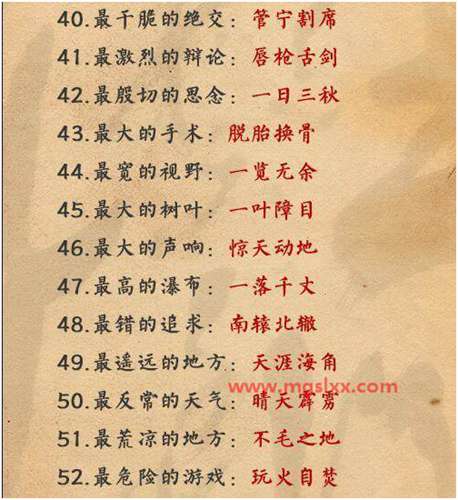 40.最干脆的绝交：管宁割席
41.最激烈的辩论：唇枪舌剑
42.最殷切的思念：一日三秋
43.最大的手术：脱胎换骨
44.最宽的视野：一览无余
45.最大的树叶：一叶障目
46.最大的声响：惊天动地
47.最高的瀑布：一落千丈
48.最错的追求：南辕北辙
49.最遥远的地方：天涯海角
www.mgslxx.com
50.最反常的天气：晴天霹雳
51.最荒凉的地方：不毛之地
52.最危险的游戏：玩火自焚